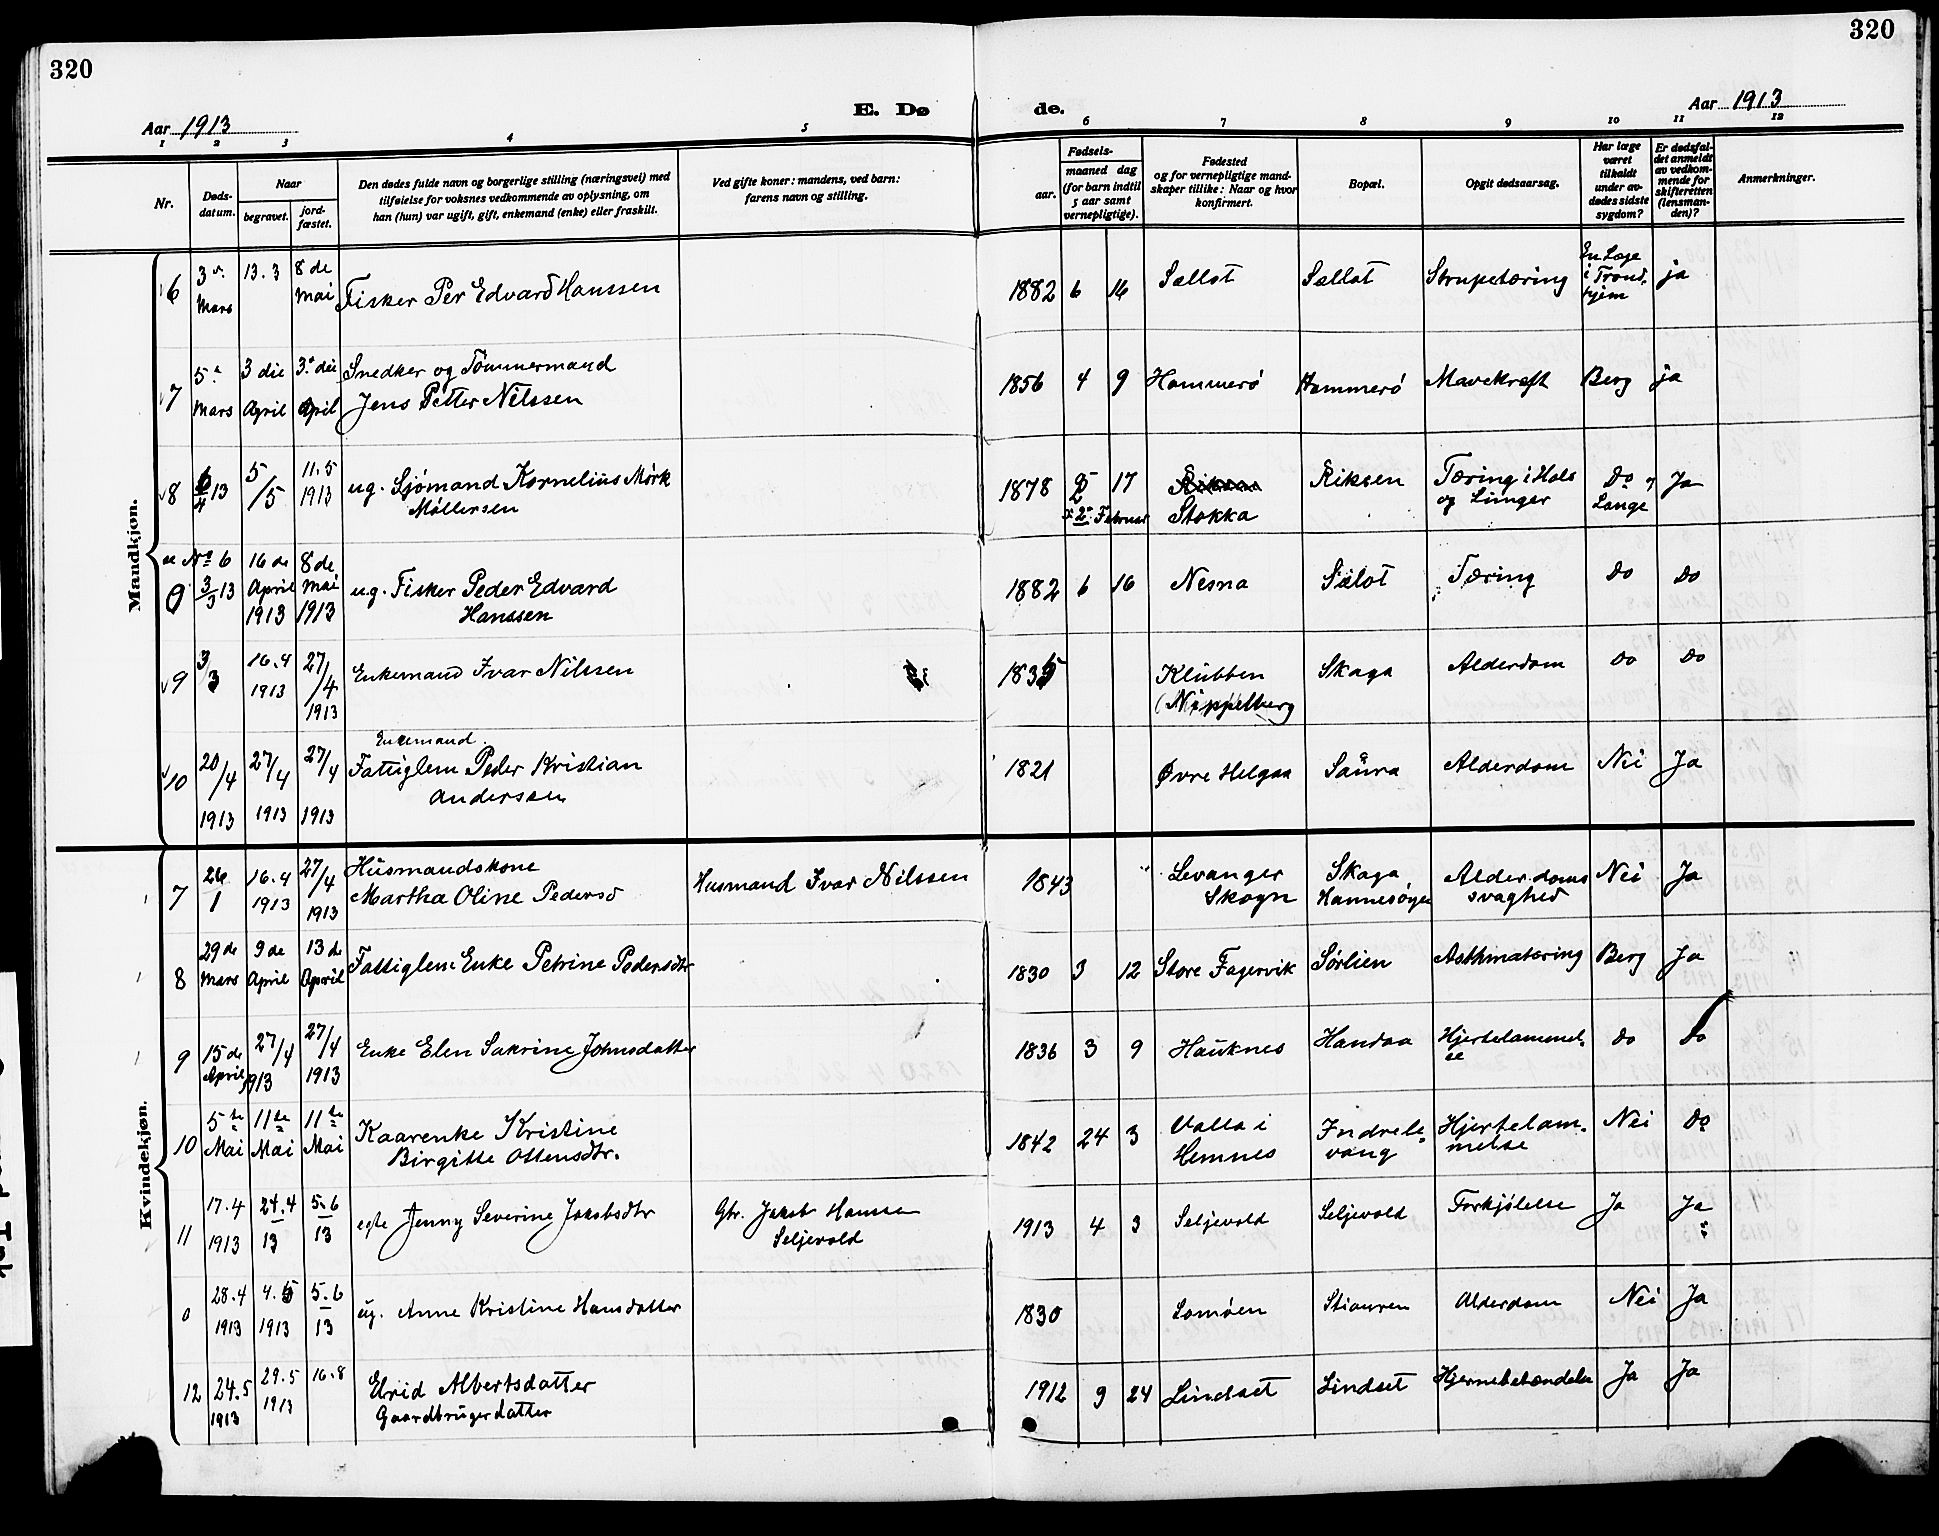 320
320
Aar 1913
E. Dø
de.
Aar 1913
1 2 3 4 5 6 7 8 9 10 11 12
Nr.
Døds-
datum.
Naar
begravet.
jord-
fæstet.
Den dødes fulde navn og borgerlige stilling (næringsvei) med
tilføielse for voksnes vedkommende av oplysning, om
han (hun) var ugift, gift, enkemand (enke) eller fraskilt.
Ved gifte koner: mandens, ved barn:
farens navn og stilling.
Fødsels-
aar.
maaned dag
(for barn indtil
5 aar samt
vernepligtige).
Fødested
og for vernepligtige mand-
skaper tillike: Naar og hvor
konfirmert.
Bopæl.
Opgit dødsaarsag.
Har læge
været
tilkaldt
under av-
dødes sidste
sygdom?
Er dødsfal-
det anmeldt
av vedkom-
mende for
skifteretten
(lensman-
den)?
Anmerkninger.
Mandkjøn.
6 3 Mars 13.3 8de Mai Fisker Per Edvard Hanssen 1882 6 16 Sellot Sellot Strupetæring En Læge i Trondhjem ja
7 5 Mars 3die April 3die April Snedker og Tömmermand
Jens Petter Nilssen 1856 4 9 Hammerö Hammerö Mavekræft Berg ja
8 6/4 13 5/5 11.5 1913 ug. Sjömand Kornelius Mörk
Möllersen 1878 2 17 Riksen Tæring i Hals og Lunger Do Lange Ja
2 Februar Stokka
No 6
0 3/3 13 16de April 1913 8de Mai 1913 ug. Fisker Peder Edvard
Hanssen 1882 6 16 Nesna Sælot Tæring Do Do
9 3/3 16.4 1913 27/4 1913 Enkemand Ivar Nilssen 1835 Klubben Skaga Alderdom Do Do
(Nippelberg
Enkemand
10 20/4 1913 27/4 1913 27/4 1913 Fattiglem Peder Kristian
Andersen 1821 Øvre Helgaa Saura Alderdom Nei Ja
Kvindekjøn.
7 26/1 16.4 1913 27/4 1913 Husmandskone
Martha Oline Pedersd Husmand Ivar Nilssen 1843 Levanger Skogn Skaga Alderdoms svaghed Nei Ja
8 29de Mars 9de April 13de April Fattiglem Enke Petrine Pedersdtr 1830 3 12 Store Fagervik Sørlien Asthmatæring Berg Ja
9 15de April 27/4 1913 27/4 1913 Enke Elen Sakrine Johnsdatter 1836 3 9 Hauknes Handaa Hjertelammelse Do Do
10 5te Mai 11te Mai 11te Mai Kaarenke Kristine
Birgitte Ottensdtr. 1842 24 3 Valla i Hemnes Indrelevang Hjertelammelse Nei Do
11 17.4 1913 24.4 13 5.6 13 egte Jenny Severine Jakobsdtr Gbr. Jakob Hansen
Seljevold 1913 4 3 Seljevold Seljevold Forkjölelse Ja Ja
0 28.4 1913 4.5 1913 5.6 13 ug. Anne Kristine Hansdatter 1830 Lomöen Stiauren Alderdom Nei Ja
12 24.5 1913 29.5 1913 16.8 Elrid Albertsdatter
Gaardbrugerdatter 1912 9 24 Lindset Lindset Hjernebetændelse Ja Ja